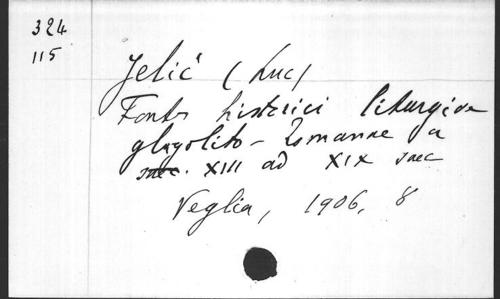 324
115
Jelić (Luc)
Fontes historici liturgiae
glagolito-romanae a
saec. XIII ad XIX saec
Veglia, 1906, 8